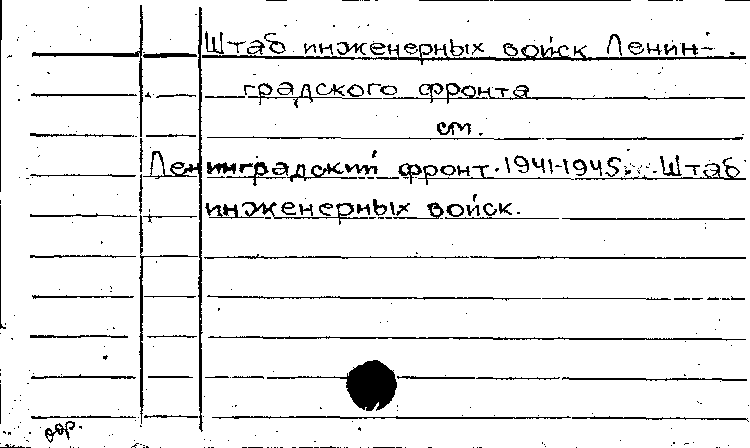 Штаб инженерных войск Ленин-
градского фронта
см.
Ленинградский фронт. 1941-1945. Штаб
инженерных войск.